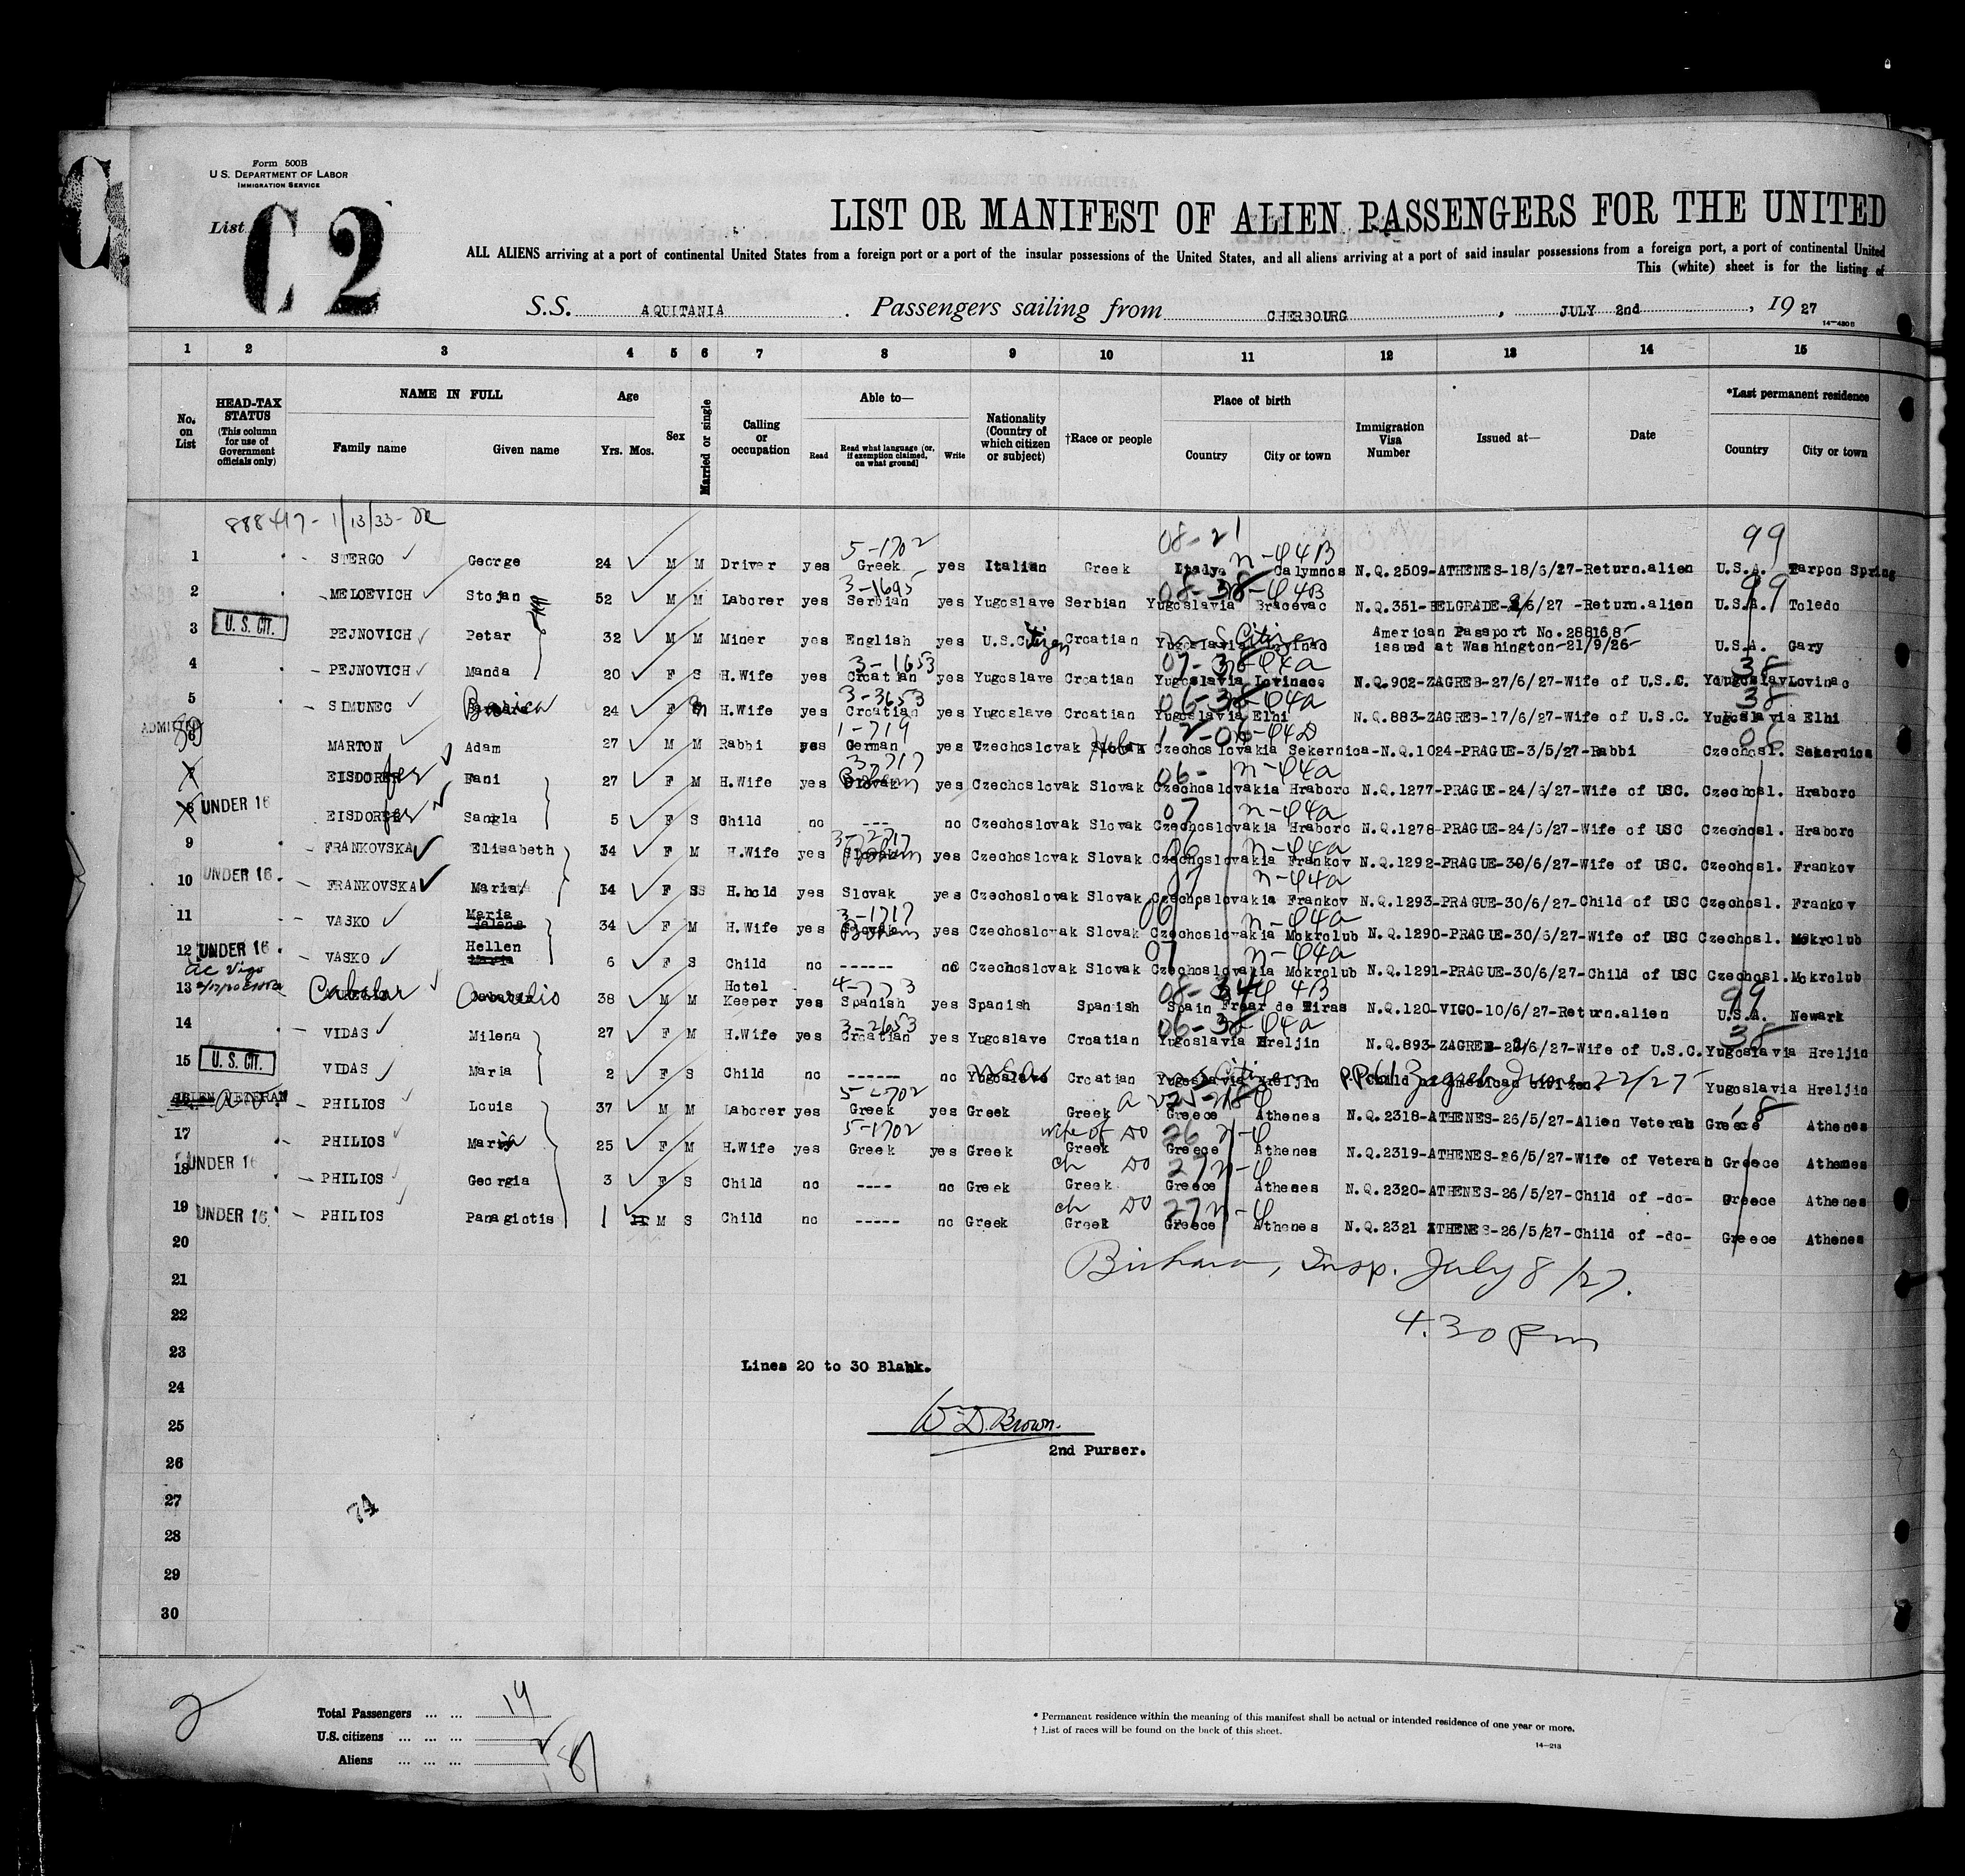 Form 500B
U. S. DEPARTMENT OF LABOR
IMMIGRATION SERVICE
List C 2
LIST OR MANIFEST OF ALIEN PASSENGERS FOR THE UNITED
ALL ALIENS arriving at a port of continental United States from a foreign port or a port of the insular possessions of the United States, and all aliens arriving at a port of said insular possessions from a foreign port, a port of continental United
This (white) sheet is for the listing of
S.S. AQUITANIA . Passengers sailing from CHERBOURG , JULY 2nd , 19 27
14-420 B
1 2 3 4 5 6 7 8 9 10 11 12 13 14 15
No. on List
HEAD-TAX STATUS (This column for use of Government officials only)
NAME IN FULL Family name Given name
Age Yrs. Mos.
Sex
Married or single
Calling or occupation
Able to— Read Read what language (or, if exemption claimed, on what ground) Write
Nationality (Country of which citizen or subject)
†Race or people
Place of birth Country City or town
Immigration Visa Number
Issued at—
Date
*Last permanent residence Country City or town
888417 - 1/13/33
08-21 99
5-1702 n-44B
1 STERGO George 24 M M Driver yes Greek yes Italian Greek Italy Calymnos N.Q.2509-ATHENES-18/6/27-Return.alien U.S.A. Tarpon Spring
3-1695 99
2 MELOEVICH Stojan 52 M M Laborer yes Serbian yes Yugoslave Serbian Yugoslavia Bracevac N.Q.351-BELGRADE- /6/27 -Return.alien U.S.A. Toledo
3 U. S. CIT. PEJNOVICH Petar 32 M M Miner yes English yes U.S.Citizen Croatian Yugoslavia Lovinac American Passport No.288168- issued at Washington-21/9/26- U.S.A. Gary
3-1653 38
4 PEJNOVICH Manda 20 F S H.Wife yes Croatian yes Yugoslave Croatian Yugoslavia Lovinac N.Q.902-ZAGREB-27/6/27-Wife of U.S.C. Yougoslav Lovinac
3-3653 38
5 SIMUNEC 24 F H.Wife yes Croatian yes Yugoslave Croatian Yugoslavia Elhi N.Q.883-ZAGREB-17/6/27-Wife of U.S.C. Yugoslavia Elhi
1-719 06
MARTON Adam 27 M M Rabbi yes German yes Czechoslovak Czechoslovakia Sekernica-N.Q.1024-PRAGUE-3/5/27-Rabbi Czechosl. Sekernica
3-717
7 EISDORFER Fani 27 F M H.Wife yes yes Czechoslovak Slovak Czechoslovakia Hraboro N.Q.1277-PRAGUE-24/6/27-Wife of USC. Czechosl. Hraboro
8 UNDER 16 EISDORFER Sangla 5 F S Child no --- no Czechoslovak Slovak Czechoslovakia Hraboro N.Q.1278-PRAGUE-24/6/27-Wife of USC Czechosl. Hraboro
9 FRANKOVSKA Elisabeth 34 F M H.Wife yes yes Czechoslovak Slovak Czechoslovakia Frankov N.Q.1292-PRAGUE-30/6/27-Wife of USC. Czechosl. Frankov
10 UNDER 16 FRANKOVSKA Maria 14 F S H.hold yes Slovak yes Czechoslovak Slovak Czechoslovakia Frankov N.Q.1293-PRAGUE-30/6/27-Child of USC Czechosl. Frankov
3-1717
11 VASKO Maria 34 F M H.Wife yes yes Czechoslovak Slovak Czechoslovakia Mokrolub N.Q.1290-PRAGUE-30/6/27-Wife of USC Czechosl. Mokrolub
12 UNDER 16 VASKO Hellen 6 F S Child no ------ no Czechoslovak Slovak Czechoslovakia Mokrolub N.Q.1291-PRAGUE-30/6/27-Child of USC Czechosl. Mokrolub
13 38 M M Hotel Keeper yes Spanish yes Spanish Spanish Spain N.Q.120-VIGO-10/6/27-Return.alien U.S.A. Newark
3-2653 38
14 VIDAS Milena 27 F M H.Wife yes Croatian yes Yugoslave Croatian Yugoslavia Hreljin N.Q.893-ZAGREB- /6/27-Wife of U.S.C. Yugoslavia Hreljin
15 U. S. CIT. VIDAS Maria 2 F S Child no ------ no Croatian Yugoslavia Hreljin Yugoslavia Hreljin
PHILIOS Louis 37 M M Laborer yes Greek yes Greek Greek Greece Athenes N.Q.2318-ATHENES-26/5/27-Alien Veteran Greece Athenes
5-1702 wife of DO
17 PHILIOS 25 F M H.Wife yes Greek yes Greek Greek Greece Athenes N.Q.2319-ATHENES-26/5/27-Wife of Veteran Greece Athenes
ch DO 27
18 UNDER 16 PHILIOS Georgia 3 F S Child no ---- no Greek Greek Greece Athenes N.Q.2320-ATHENES-26/5/27-Child of -do- Greece Athenes
ch DO 27
19 UNDER 16 PHILIOS Panagiotis 1 M S Child no ----- no Greek Greek Greece Athenes N.Q.2321 ATHENES-26/5/27-Child of -do- Greece Athenes
20
21 Insp. July 8/27.
22 4.30 pm
23 Lines 20 to 30 Blank.
24
25 W. D. Brown.
2nd Purser.
26
27 74
28
29
30
2
Total Passengers ... ... 19
U.S. citizens ... ... ...
Aliens ... ... ...
* Permanent residence within the meaning of this manifest shall be actual or intended residence of one year or more.
† List of races will be found on the back of this sheet.
14-213